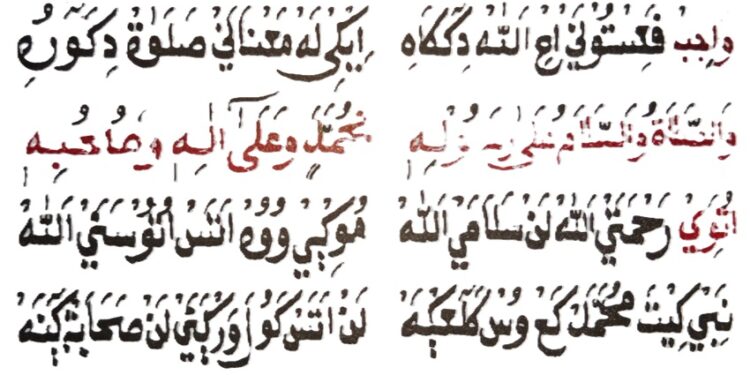 واجب فعستوني اع الله دككاه ايكي له معناني صلوة دكووره
والصلاة والسلام على رسوله محمد وعلى آله وصاحبه
اتوي رحمتي الله لن سلامي الله موكي ووه اتس اتوسني الله
نبي كيت محمد كع وس لن اتس كول وركني لن صحابة